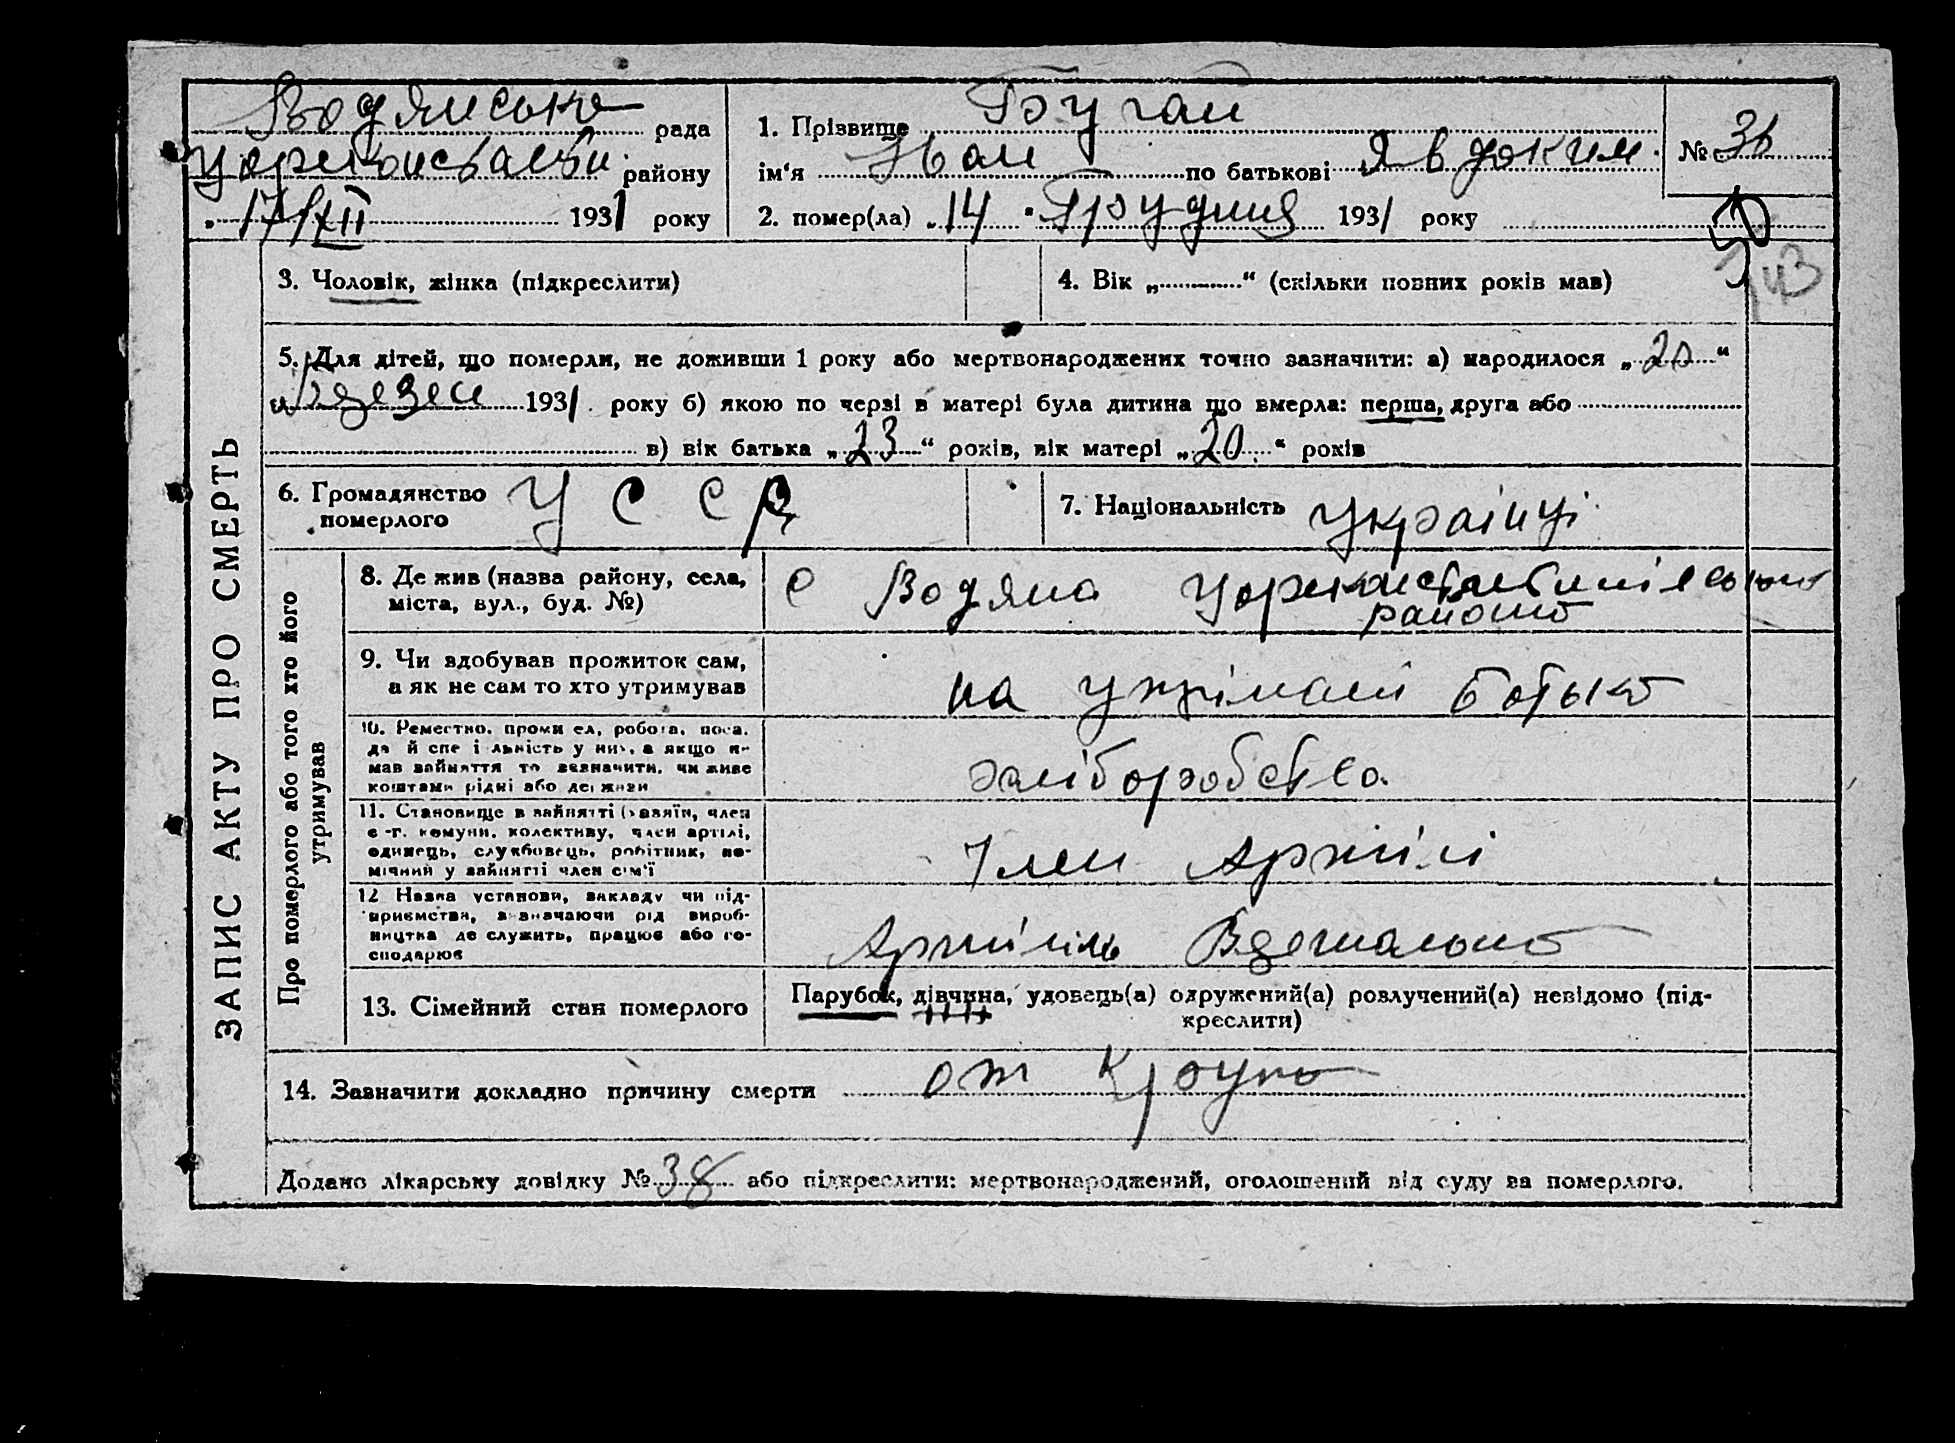 Водянська рада
району
17/XII 1931 року
1. Прізвище Бугай
ім'я Іван по батькові Явдоким.
№ 36
2. помер(ла) "14" Грудня 1931 року
3. Чоловік, жінка (підкреслити)
4. Вік „..........“ (скільки повних років мав)
143
5. Для дітей, що померли, не доживши 1 року або мертвонароджених точно зазначити: а) народилося „20“
1931 року б) якою по черзі в матері була дитина що вмерла: перша, друга або
в) вік батька „23“ років, вік матері „20“ років
6. Громадянство
померлого
У С С Р
7. Національність
Українці
ЗАПИС АКТУ ПРО СМЕРТЬ
Про померлого або того хто його
утримував
8. Де жив (назва району, села,
міста, вул., буд. №)
с Водяна
району
9. Чи здобував прожиток сам,
а як не сам то хто утримував
на утрімані батька
10. Ремество, промисел, робота, поса-
да й спеціальність у них, а якщо н-
мав зайняття то зазначити, чи живе
коштами рідні або держави
хліборобство
11. Становище в зайнятті (хазяїн, член
с-г. комуни, колективу, член артілі,
одинець, службовець, робітник, по-
мічний у зайнятті член сім'ї
Член Артілі
12 Назва установи, закладу чи під-
приємства, зазначаючи рід вироб-
ництва де служить, працює або го-
сподарює
Артіль
13. Сімейний стан померлого
Парубок, дівчина, удовець(а) одружений(а) розлучений(а) невідомо (під-
креслити)
14. Зазначити докладно причину смерти от Крупа
Додано лікарську довідку № 38 або підкреслити: мертвонароджений, оголошений від суду за померлого.